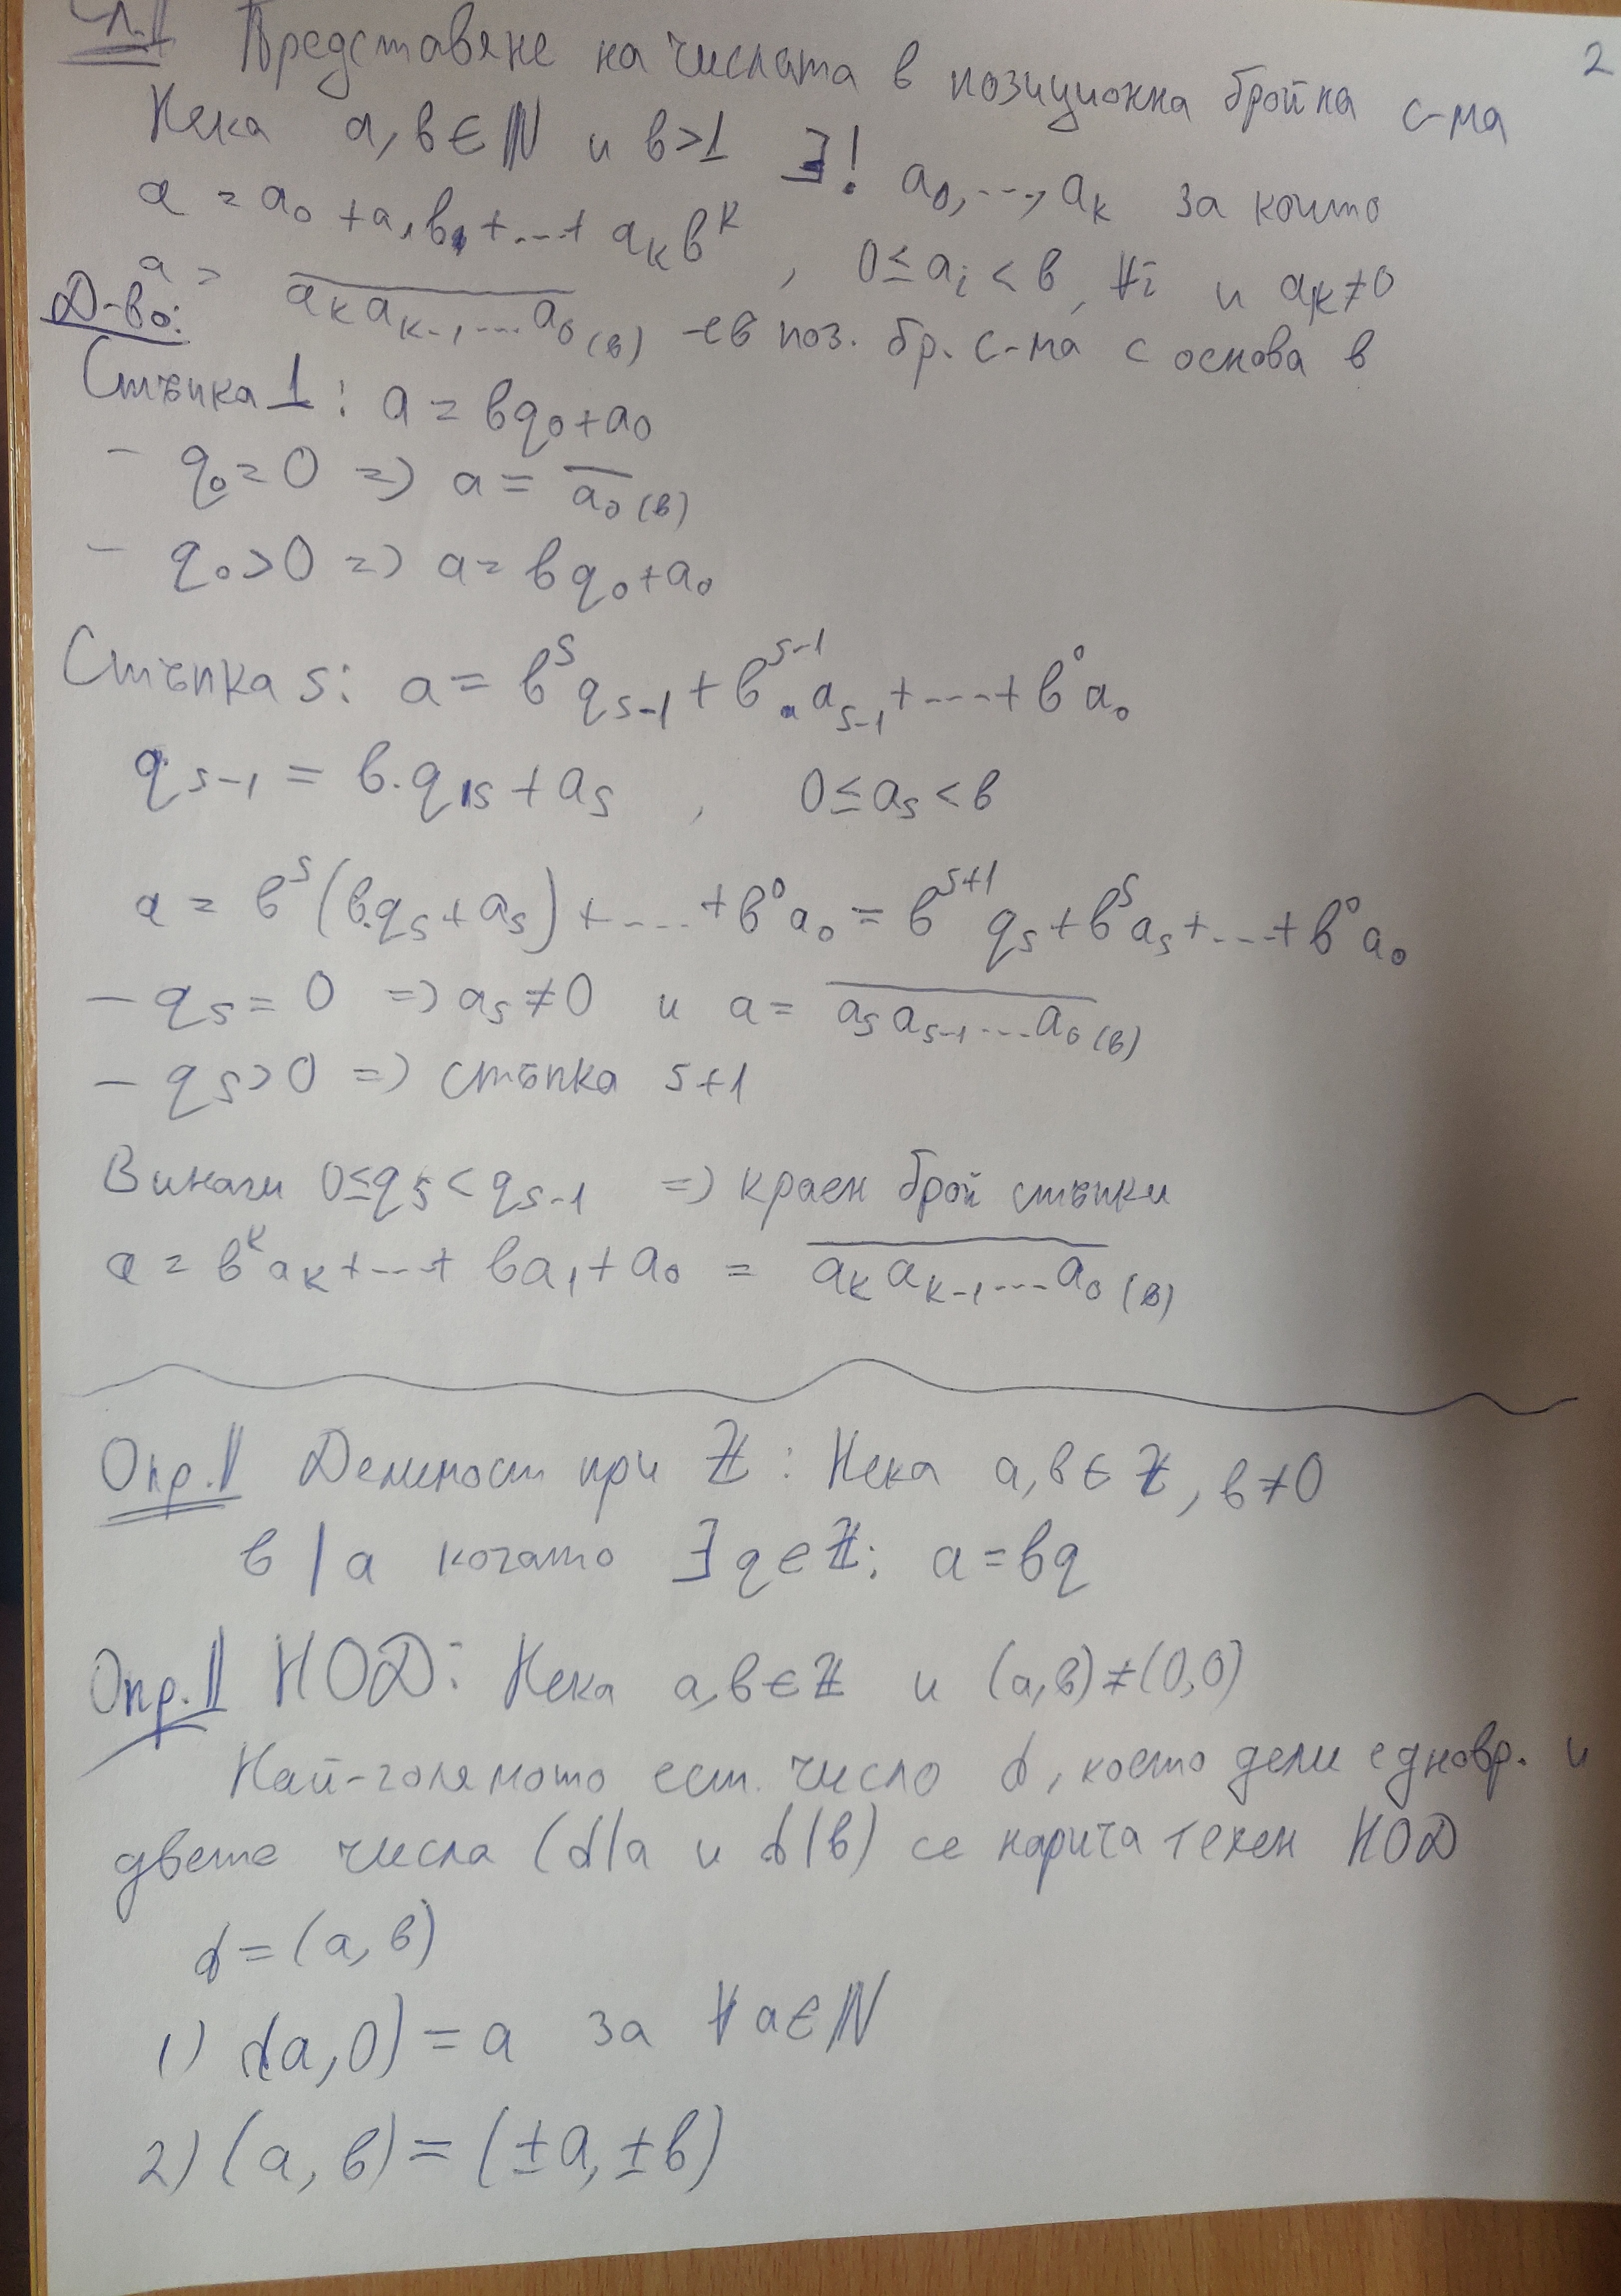 2
Сл.|| Представяне на числата в позиционна бройна с-ма
Нека a, b ∈ ℕ и b>1 ∃! a₀, ..., aₖ за които
a = a₀ + a₁b₁ + ... + aₖbᵏ , 0 ≤ aᵢ < b, ∀i и aₖ ≠ 0
a = a̅ₖa̅ₖ₋₁...a̅₀₍b₎ - е в поз. бр. с-ма с основа b
Д-во:
Стъпка 1: a = bq₀ + a₀
- q₀ = 0 => a = a̅₀₍b₎
- q₀ > 0 => a = bq₀ + a₀
Стъпка s: a = bˢqₛ₋₁ + bˢ⁻¹.aₛ₋₁ + ... + b⁰a₀
qₛ₋₁ = b.qₛ + aₛ , 0 ≤ aₛ < b
a = bˢ(b.qₛ + aₛ) + ... + b⁰a₀ = bˢ⁺¹qₛ + bˢaₛ + ... + b⁰a₀
- qₛ = 0 => aₛ ≠ 0 и a = a̅ₛa̅ₛ₋₁...a̅₀₍b₎
- qₛ > 0 => стъпка s+1
Винаги 0 ≤ qₛ < qₛ₋₁ => краен брой стъпки
a = bᵏaₖ + ... + ba₁ + a₀ = a̅ₖa̅ₖ₋₁...a̅₀₍b₎
Опр.|| Делимост при ℤ : Нека a, b ∈ ℤ, b ≠ 0
b | a когато ∃ q ∈ ℤ: a = bq
Опр.|| НОД: Нека a, b ∈ ℤ и (a, b) ≠ (0, 0)
Най-голямото ест. число d, което дели едновр. и
двете числа (d|a и d|b) се нарича техен НОД
d = (a, b)
1) (a, 0) = a за ∀ a ∈ ℕ
2) (a, b) = (±a, ±b)